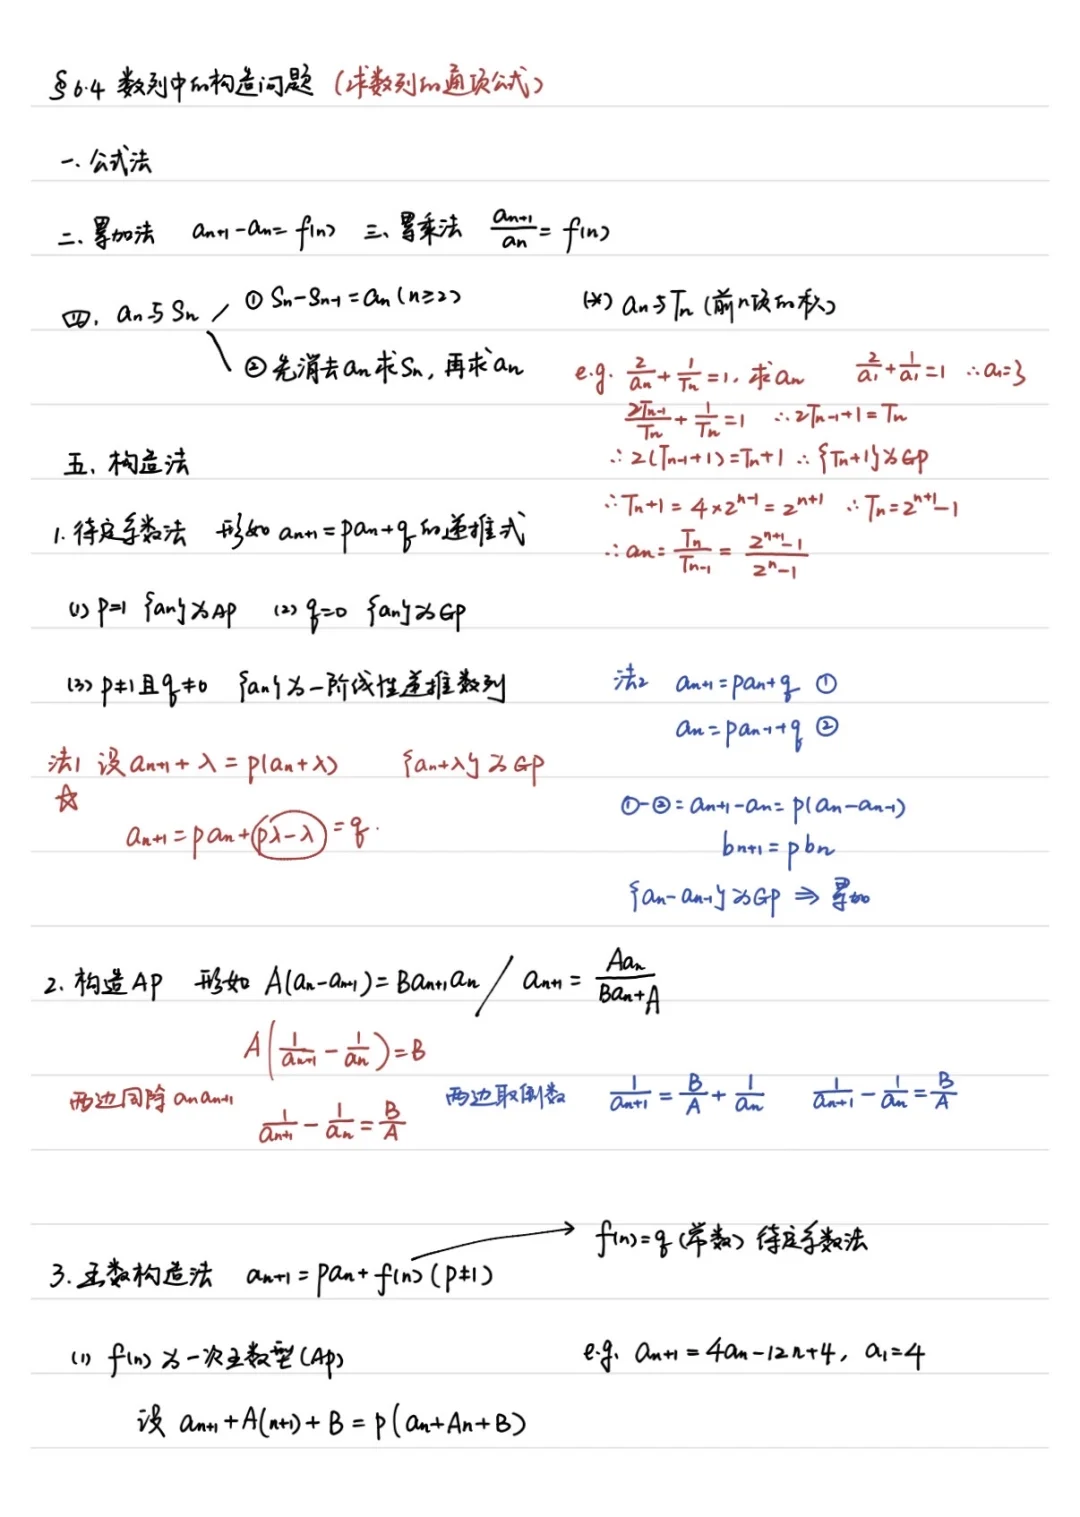 §6.4 数列中的构造问题（求数列的通项公式）
一、公式法
二、累加法 aₙ₊₁-aₙ=f(n) 三、累乘法 aₙ₊₁/aₙ=f(n)
四、aₙ与Sₙ ① Sₙ-Sₙ₋₁=aₙ(n≥2)
② 先消去aₙ求Sₙ，再求aₙ
(*) aₙ与Tₙ(前n项的积)
e.g. 2/aₙ+1/Tₙ=1，求aₙ 2/a₁+1/a₁=1 ∴a₁=3
2Tₙ₋₁/Tₙ+1/Tₙ=1 ∴2Tₙ₋₁+1=Tₙ
∴2(Tₙ₋₁+1)=Tₙ+1 ∴{Tₙ+1}为GP
∴Tₙ+1=4×2ⁿ⁻¹=2ⁿ⁺¹ ∴Tₙ=2ⁿ⁺¹-1
∴aₙ=Tₙ/Tₙ₋₁=(2ⁿ⁺¹-1)/(2ⁿ-1)
五、构造法
1.待定系数法 形如aₙ₊₁=paₙ+q的递推式
(1) p=1 {aₙ}为AP (2) q=0 {aₙ}为GP
(3) p≠1且q≠0 {aₙ}为一阶线性递推数列
法1 设aₙ₊₁+λ=p(aₙ+λ) {aₙ+λ}为GP
☆
aₙ₊₁=paₙ+pλ-λ =q.
法2 aₙ₊₁=paₙ+q ①
aₙ=paₙ₋₁+q ②
①-②=aₙ₊₁-aₙ=p(aₙ-aₙ₋₁)
bₙ₊₁=pbₙ
{aₙ-aₙ₋₁}为GP ⇒ 累加
2. 构造AP 形如 A(aₙ-aₙ₊₁)=Baₙ₊₁aₙ / aₙ₊₁=Aaₙ/(Baₙ+A)
A(1/aₙ₊₁-1/aₙ)=B
两边同除aₙaₙ₊₁ 1/aₙ₊₁-1/aₙ=B/A
两边取倒数 1/aₙ₊₁=B/A+1/aₙ 1/aₙ₊₁-1/aₙ=B/A
3.函数构造法 aₙ₊₁=paₙ+f(n)(p≠1) → f(n)=q(常数) 待定系数法
(1) f(n)为一次函数型(AP)
设 aₙ₊₁+A(n+1)+B=p(aₙ+An+B)
e.g. aₙ₊₁=4aₙ-12n+4，a₁=4